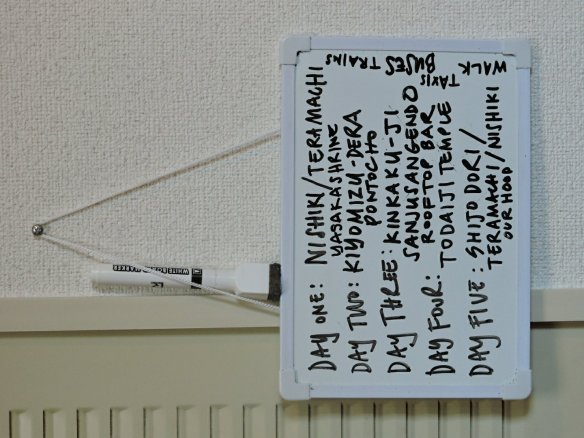 DAY ONE: NISHIKI/TERAMACHI
YASAKA SHRINE
DAY TWO: KIYOMIZU-DERA
PONTOCHO
DAY THREE: KINKAKU-JI
SANJUSANGENDO
ROOFTOP BAR
DAY FOUR: TODAIJI TEMPLE
DAY FIVE: SHIJO DORI/
TERAMACHI/NISHIKI
OUR HOOD
WALK
TAXIS
BUSES
TRAINS
WHITEBOARD MARKER